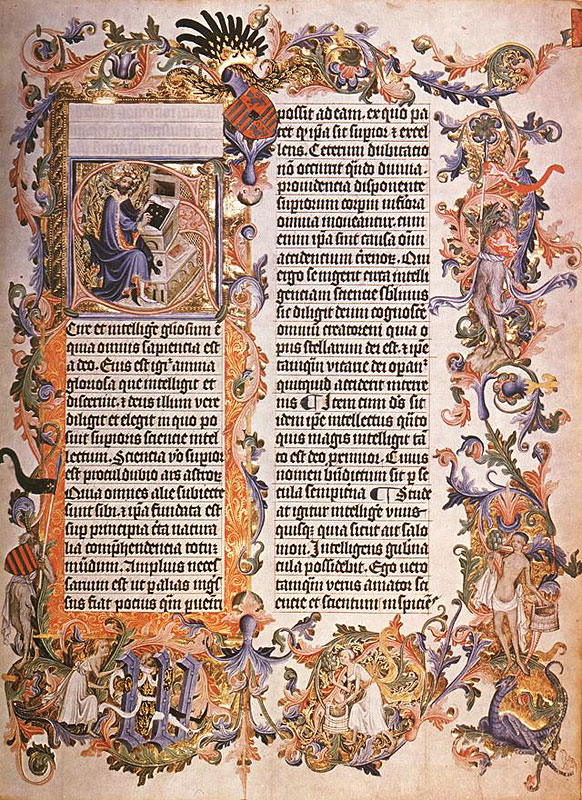 Scire et intelligẽ gl̃iosum ē
quia omnis sapiencia est
a deo. Eius est igr̃ anima
gloriosa que intelligit et
discernit. ⁊ deus illum vere
diligit et elegit in quo po
suit supioris sciencie intel
lectum. Sciencia v̊o supior
est proculdubio ars astror̃
Quia omnes alie subiecte
sunt sibi. ⁊ ip̃a fundata est
sup principia c̃ta natura
lia comp̃hendencia totũ
mũdum. Amplius neces
sarium est ut p alias
sus fiat pocius q̃m
possit ad eam. ex quo pa
tet quip̃a sit supior ⁊ excel
lens. Ceterum dubitacio
nõ occurit qñdo diuina
prouidencia disponente
supiorum corpor̃ inferiora
omnia moueantur. cum
enim ip̃a sint causa om̃i
accidencium Qui
ergo se ingerit circa intelli
genciam sciencie sb̃limius
sic diligit deum cognoscẽ
omniũ creatorem quia o
pus stellarum dei est. ⁊ ip̃e
tamq̃m vicarie dei opant̃
quicquid acciderit in terre
nis ¶ Item cum d̃s sit
idem ip̃e intellectus q̃nto
quis magis intelligit tã
to est deo, Cuius
nomen bñdictum sit p se
cula sempitña ¶ Stude
at igitur intelligẽ vnus
quisq̃ quia sicut ait salo
mon. Intelligens gubña
cula possidebit. Ego vero
tamq̃m verus amator sci
encie et scientum inspiciẽs